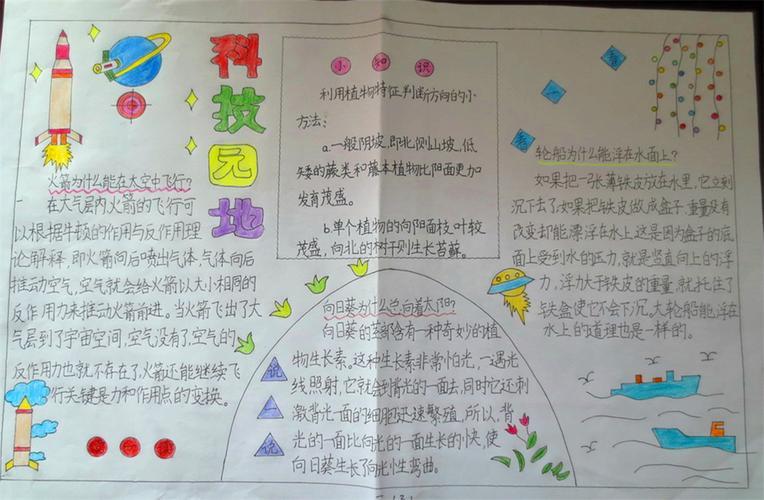 科
技
园
地
火箭为什么能在太空中飞行?
在大气层内火箭的飞行可
以根据牛顿的作用与反作用理
论解释,即火箭向后喷出气体,气体向后
推动空气,空气就会给火箭以大小相同的
反作用力来推动火箭前进。当火箭飞出了大
气层到了宇宙空间,空气没有了,空气的
反作用力也就不存在了,火箭还能继续飞
行关键是力和作用点的变换。
小知识
利用植物特征判断方向的小
方法:
a.一般阴坡,即北侧山坡,低
矮的蕨类和藤本植物比阳面更加
发育茂盛。
b.单个植物的向阳面枝叶较
茂盛,向北的树干则生长苔藓。
向日葵为什么总向着太阳?
向日葵的茎部含有一种奇妙的植
物生长素。这种生长素非常怕光,一遇光
线照射,它就会到背光的一面去,同时它还刺
激背光一面的细胞迅速繁殖,所以,背
光的一面比向光的一面生长的快,使
向日葵生长了向光性弯曲。
说
一
说
看
一
看
轮船为什么能浮在水面上?
如果把一张薄铁皮放在水里,它立刻
沉下去了,如果把铁皮做成盒子,重量没有
改变却能漂浮在水上,这是因为盒子的底
面上受到水的压力,就是竖直向上的浮
力,浮力大于铁皮的重量,就托住了
铁盒使它不会下沉。大轮船能浮在
水上的道理也是一样的。